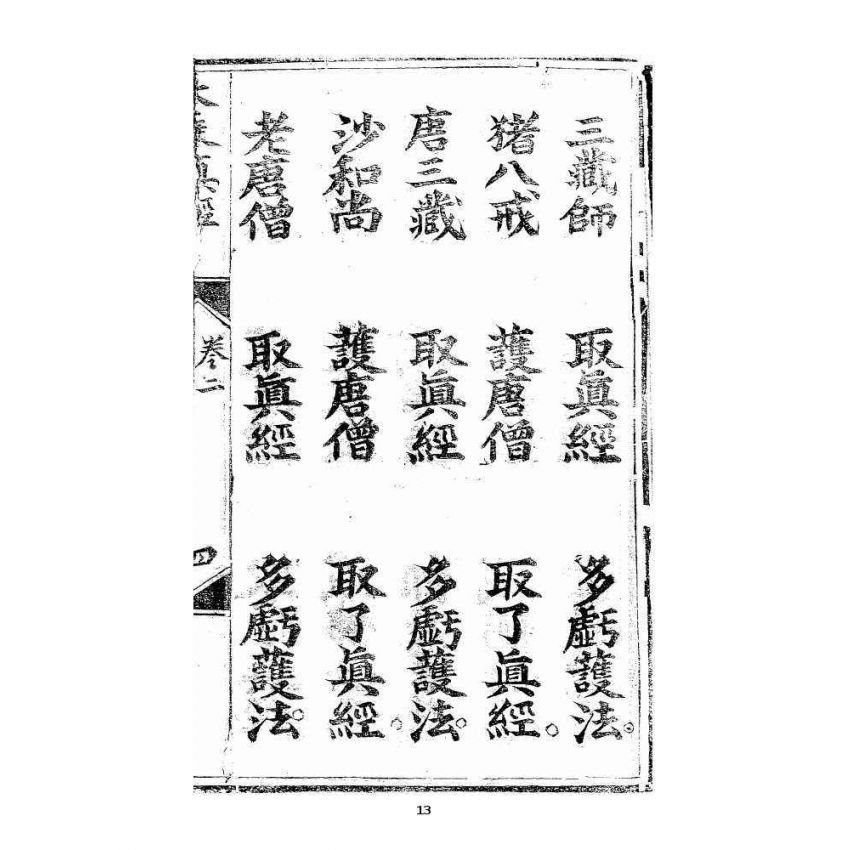 三藏師 取眞經 多虧護法。
猪八戒 護唐僧 取了眞經。
唐三藏 取眞經 多虧護法。
沙和尚 護唐僧 取了眞經。
老唐僧 取眞經 多虧護法。
眞經 卷二 四
13